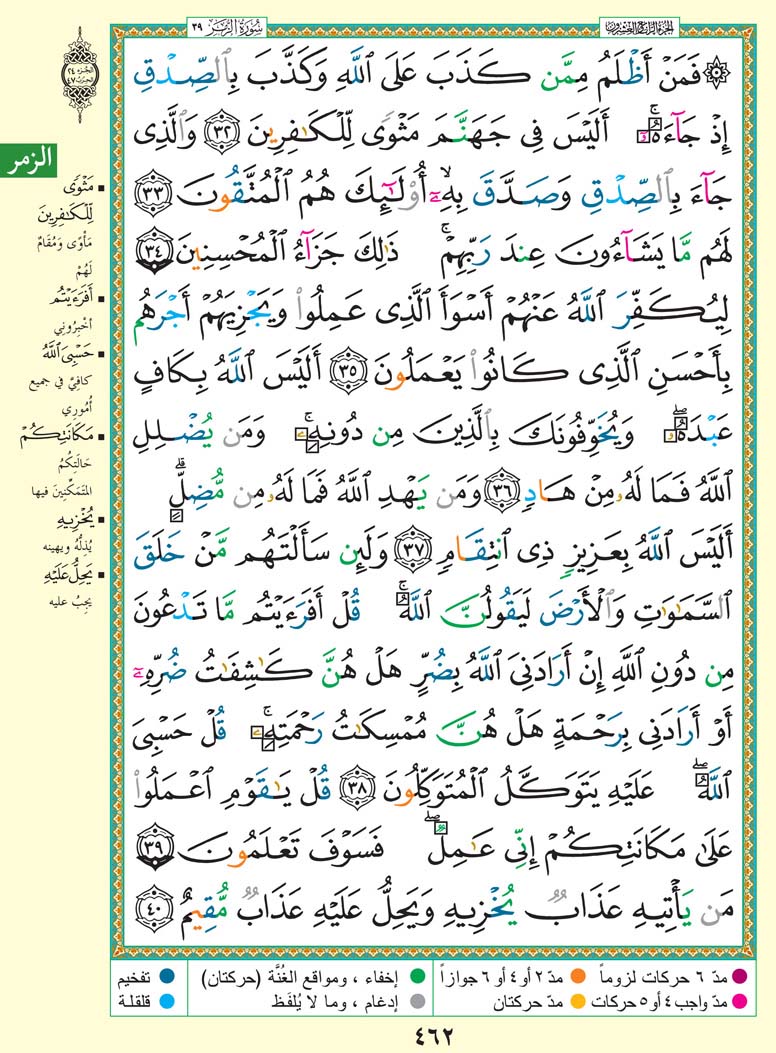 سُورَةُ الزُّمَرِ ٣٩
الجزء الرابع والعشرون
۞ فَمَنْ أَظْلَمُ مِمَّن كَذَبَ عَلَى ٱللَّهِ وَكَذَّبَ بِٱلصِّدْقِ
إِذْ جَآءَهُۥٓ ۚ أَلَيْسَ فِى جَهَنَّمَ مَثْوًى لِّلْكَـٰفِرِينَ ٣٢ وَٱلَّذِى
جَآءَ بِٱلصِّدْقِ وَصَدَّقَ بِهِۦٓ ۙ أُو۟لَـٰٓئِكَ هُمُ ٱلْمُتَّقُونَ ٣٣
لَهُم مَّا يَشَآءُونَ عِندَ رَبِّهِمْ ۚ ذَٰلِكَ جَزَآءُ ٱلْمُحْسِنِينَ ٣٤
لِيُكَفِّرَ ٱللَّهُ عَنْهُمْ أَسْوَأَ ٱلَّذِى عَمِلُوا۟ وَيَجْزِيَهُمْ أَجْرَهُم
بِأَحْسَنِ ٱلَّذِى كَانُوا۟ يَعْمَلُونَ ٣٥ أَلَيْسَ ٱللَّهُ بِكَافٍ
عَبْدَهُۥ ۖ وَيُخَوِّفُونَكَ بِٱلَّذِينَ مِن دُونِهِۦ ۚ وَمَن يُضْلِلِ
ٱللَّهُ فَمَا لَهُۥ مِنْ هَادٍ ٣٦ وَمَن يَهْدِ ٱللَّهُ فَمَا لَهُۥ مِن مُّضِلٍّ ۗ
أَلَيْسَ ٱللَّهُ بِعَزِيزٍ ذِى ٱنتِقَامٍ ٣٧ وَلَئِن سَأَلْتَهُم مَّنْ خَلَقَ
ٱلسَّمَـٰوَٰتِ وَٱلْأَرْضَ لَيَقُولُنَّ ٱللَّهُ ۚ قُلْ أَفَرَءَيْتُم مَّا تَدْعُونَ
مِن دُونِ ٱللَّهِ إِنْ أَرَادَنِىَ ٱللَّهُ بِضُرٍّ هَلْ هُنَّ كَـٰشِفَـٰتُ ضُرِّهِۦٓ
أَوْ أَرَادَنِى بِرَحْمَةٍ هَلْ هُنَّ مُمْسِكَـٰتُ رَحْمَتِهِۦ ۚ قُلْ حَسْبِىَ
ٱللَّهُ ۖ عَلَيْهِ يَتَوَكَّلُ ٱلْمُتَوَكِّلُونَ ٣٨ قُلْ يَـٰقَوْمِ ٱعْمَلُوا۟
عَلَىٰ مَكَانَتِكُمْ إِنِّى عَـٰمِلٌ ۖ فَسَوْفَ تَعْلَمُونَ ٣٩
مَن يَأْتِيهِ عَذَابٌ يُخْزِيهِ وَيَحِلُّ عَلَيْهِ عَذَابٌ مُّقِيمٌ ٤٠
الجزء ٢٤
الحزب ٤٧
الزمر
مَثْوًى
لِّلْكَـٰفِرِينَ
مَأْوًى وَمُقَامٌ
لَهُمْ
أَفَرَءَيْتُم
أخْبِرُوني
حَسْبِىَ ٱللَّهُ
كافِيَّ في جميع
أُمُورِي
مَكَانَتِكُمْ
حَالَتِكُمْ
المُتَمَكِّنِينَ فيها
يُخْزِيهِ
يُذِلُّهُ ويهينه
يَحِلُّ عَلَيْهِ
يَجِبُ عليه
مدّ ٦ حركات لزوماً
مدّ ٢ أو ٤ أو ٦ جوازاً
إخفاء ، ومواقع الغُنَّة (حركتان)
تفخيم
مدّ واجب ٤ أو ٥ حركات
مدّ حركتان
إدغام ، وما لا يُلفَظ
قلقلة
٤٦٢